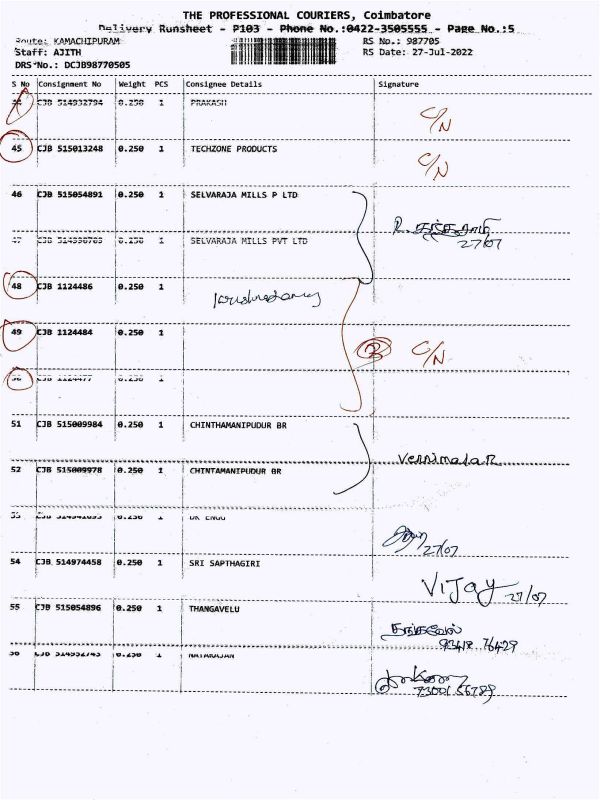 THE PROFESSIONAL COURIERS, Coimbatore
Delivery Runsheet - P103 - Phone No.:0422-3505555 - Page No.:5
Route: KAMACHIPURAM RS No.: 987705
Staff: AJITH RS Date: 27-Jul-2022
DRS No.: DCJB98770505
S No Consignment No Weight PCS Consignee Details Signature
CJB 514932794 0.250 1 PRAKASH
C/N
45 CJB 515013248 0.250 1 TECHZONE PRODUCTS
C/N
46 CJB 515054891 0.250 1 SELVARAJA MILLS P LTD
27/07
47 CJB 0.250 1 SELVARAJA MILLS PVT LTD
48 CJB 1124486 0.250 1
49 CJB 1124484 0.250 1
3 C/N
CJB 1124477 0.250 1
51 CJB 515009984 0.250 1 CHINTHAMANIPUDUR BR
52 CJB 515009978 0.250 1 CHINTAMANIPUDUR BR
0.250 1 UK ENGG
27/07
54 CJB 514974458 0.250 1 SRI SAPTHAGIRI
Vijay 27/07
55 CJB 515054896 0.250 1 THANGAVELU
தங்கவேல்
CJB 0.250 1 NATARAJAN